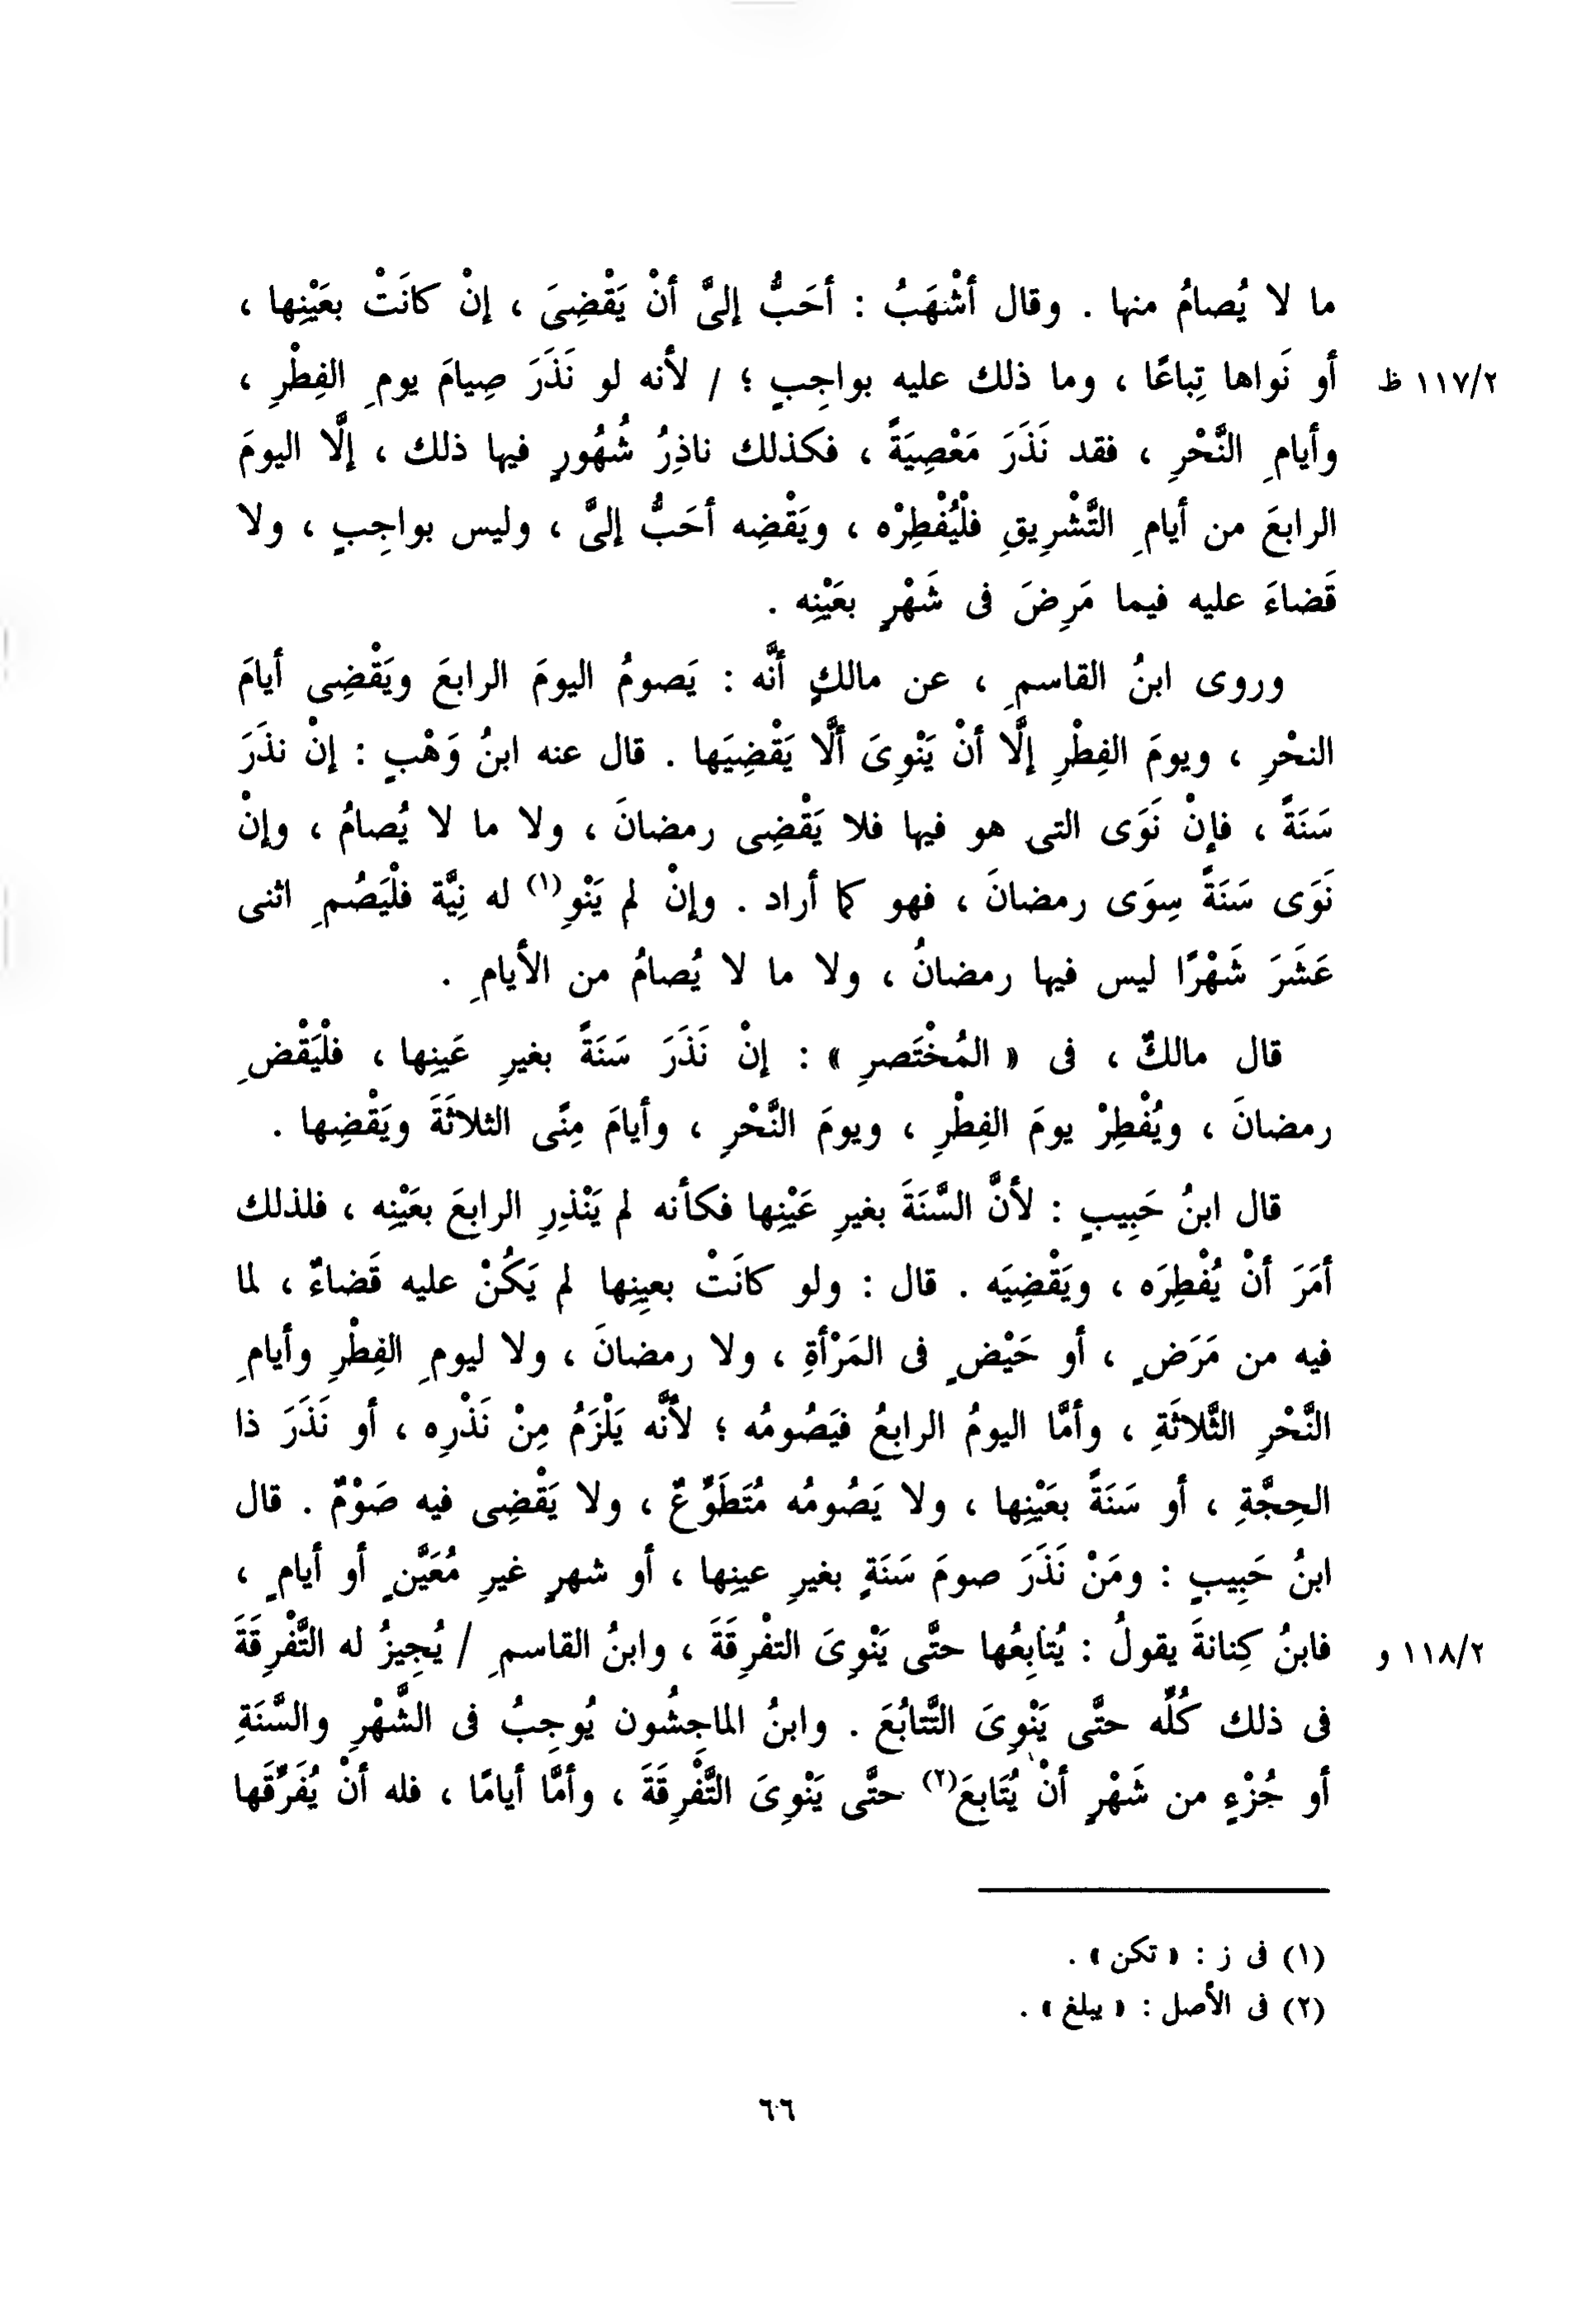 ما لا يُصامُ منها . وقال أشْهَبُ : أحَبُّ إلىَّ أنْ يَقْضِىَ ، إنْ كانَتْ بعَيْنِها ،
أو نَواها تِباعًا ، وما ذلك عليه بواجِبٍ ؛ / لأنه لو نَذَرَ صِيامَ يومِ الفِطْرِ ، ١١٧/٢ ظ
وأيامِ النَّحْرِ ، فقد نَذَرَ مَعْصِيَةً ، فكذلك ناذِرُ شُهُورٍ فيها ذلك ، إلَّا اليومَ
الرابعَ من أيامِ التَّشْرِيقِ فلْيُفْطِرْه ، ويَقْضِه أحَبُّ إلىَّ ، وليس بواجِبٍ ، ولا
قَضاءَ عليه فيما مَرِضَ فى شَهْرٍ بعَيْنِه .
وروى ابنُ القاسمِ ، عن مالكٍ أنَّه : يَصومُ اليومَ الرابعَ ويَقْضِى أيامَ
النحْرِ ، ويومَ الفِطْرِ إلَّا أنْ يَنْوِىَ ألَّا يَقْضِيَها . قال عنه ابنُ وَهْبٍ : إنْ نذَرَ
سَنَةً ، فإنْ نَوَى التى هو فيها فلا يَقْضِى رمضانَ ، ولا ما لا يُصامُ ، وإنْ
نَوَى سَنَةً سِوَى رمضانَ ، فهو كما أراد . وإنْ لم يَنْوِ(١) له نِيَّة فلْيَصُمِ اثنى
عَشَرَ شَهْرًا ليس فيها رمضانُ ، ولا ما لا يُصامُ من الأيامِ .
قال مالكٌ ، فى « المُخْتَصرِ » : إنْ نَذَرَ سَنَةً بغيرِ عَينِها ، فلْيَقْضِ
رمضانَ ، ويُفْطِرْ يومَ الفِطْرِ ، ويومَ النَّحْرِ ، وأيامَ مِنًى الثلاثَةَ ويَقْضِها .
قال ابنُ حَبِيبٍ : لأنَّ السَّنَةَ بغيرِ عَيْنِها فكأنه لم يَنْذِرِ الرابعَ بعَيْنِه ، فلذلك
أمَرَ أنْ يُفْطِرَه ، ويَقْضِيَه . قال : ولو كانَتْ بعينِها لم يَكُنْ عليه قَضاءٌ ، لما
فيه من مَرَضٍ ، أو حَيْضٍ فى المَرْأةِ ، ولا رمضانَ ، ولا ليومِ الفِطْرِ وأيامِ
النَّحْرِ الثَّلاثَةِ ، وأمَّا اليومُ الرابعُ فيَصُومُه ؛ لأنَّه يَلْزَمُ مِنْ نَذْرِه ، أو نَذَرَ ذا
الحِجَّةِ ، أو سَنَةً بعَيْنِها ، ولا يَصُومُه مُتَطَوِّعٌ ، ولا يَقْضِى فيه صَوْمٌ . قال
ابنُ حَبِيبٍ : ومَنْ نَذَرَ صومَ سَنَةٍ بغيرِ عينِها ، أو شهرٍ غيرِ مُعَيَّنٍ أو أيامٍ ،
فابنُ كِنانةَ يقولُ : يُتابِعُها حتَّى يَنْوِىَ التفْرِقَةَ ، وابنُ القاسمِ / يُجِيزُ له التَّفْرِقَةَ ١١٨/٢ و
فى ذلك كُلِّه حتَّى يَنْوِىَ التَّتابُعَ . وابنُ الماجِشُون يُوجِبُ فى الشَّهْرِ والسَّنَةِ
أو جُزْءٍ من شَهْرٍ أنْ يُتَابعَ(٢) حتَّى يَنْوِىَ التَّفْرِقَةَ ، وأمَّا أيامًا ، فله أنْ يُفَرِّقَها
(١) فى ز : « تكن » .
(٢) فى الأصل : « يبلغ » .
٦٦